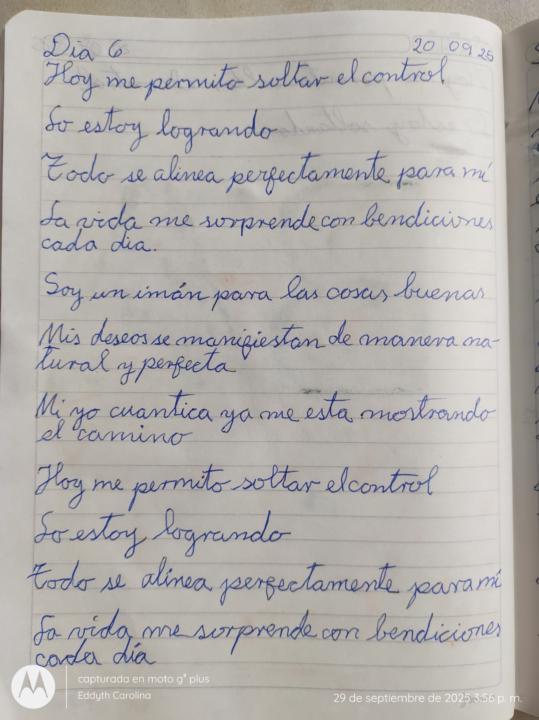 Dia 6 20 09 25
Hoy me permito soltar el control
Lo estoy logrando
Todo se alinea perfectamente para mí
La vida me sorprende con bendiciones
cada dia.
Soy un imán para las cosas buenas
Mis deseos se manifiestan de manera na-
tural y perfecta
Mi yo cuantica ya me esta mostrando
el camino
Hoy me permito soltar el control
Lo estoy logrando
Todo se alinea perfectamente para mí
La vida me sorprende con bendiciones
cada día
capturada en moto g⁵ plus
Eddyth Carolina
29 de septiembre de 2025 3:56 p. m.